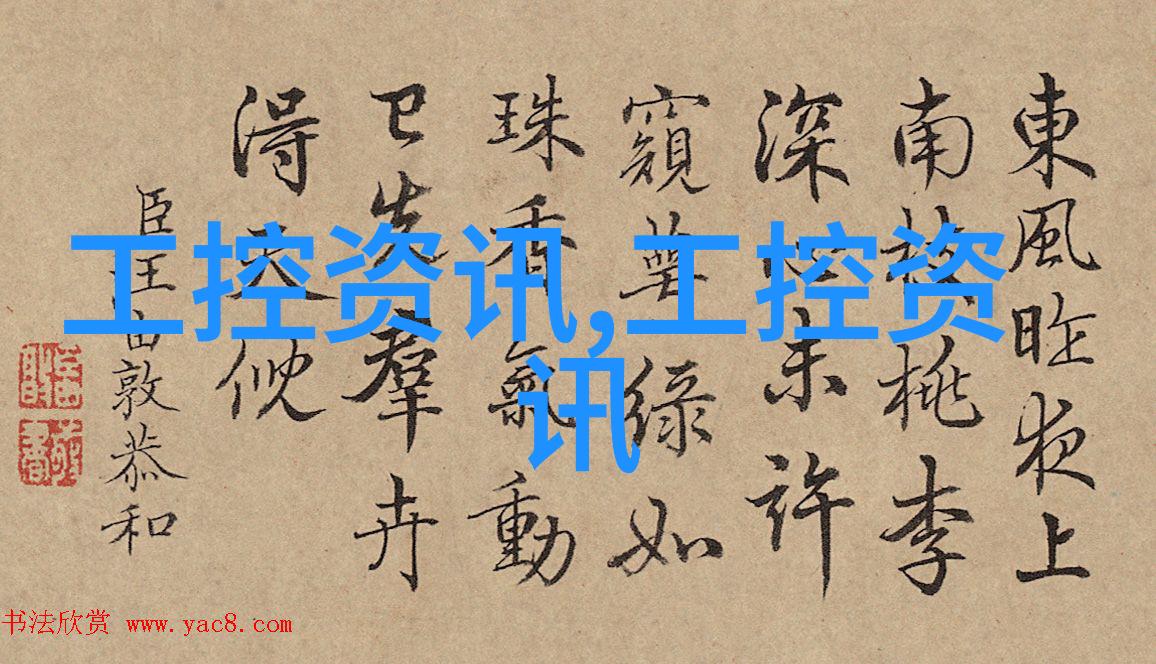 東風昨夜上
南枝桃李
深未許
窺萼綠如
珠香氣動
已先羣卉
得天倪
臣汪由敦恭和
工控资讯,工控资
讯
书法欣赏 www.yac8.com